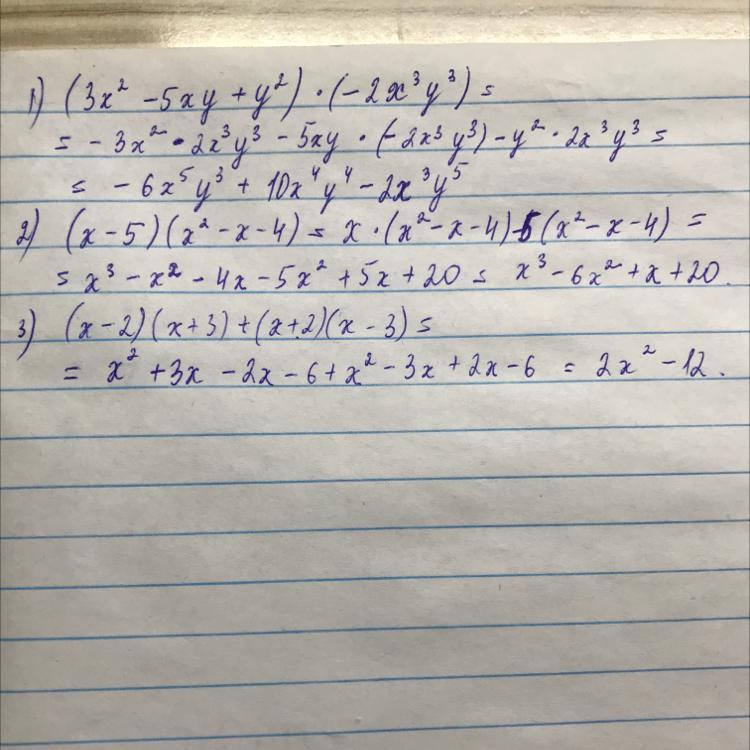 1) (3x² - 5xy + y²) · (-2x³y³) =
= - 3x² · 2x³y³ - 5xy · (-2x³y³) - y² · 2x³y³ =
= - 6x⁵y³ + 10x⁴y⁴ - 2x³y⁵
2) (x - 5)(x² - x - 4) = x · (x² - x - 4) - 5(x² - x - 4) =
= x³ - x² - 4x - 5x² + 5x + 20 = x³ - 6x² + x + 20.
3) (x - 2)(x + 3) + (x + 2)(x - 3) =
= x² + 3x - 2x - 6 + x² - 3x + 2x - 6 = 2x² - 12.